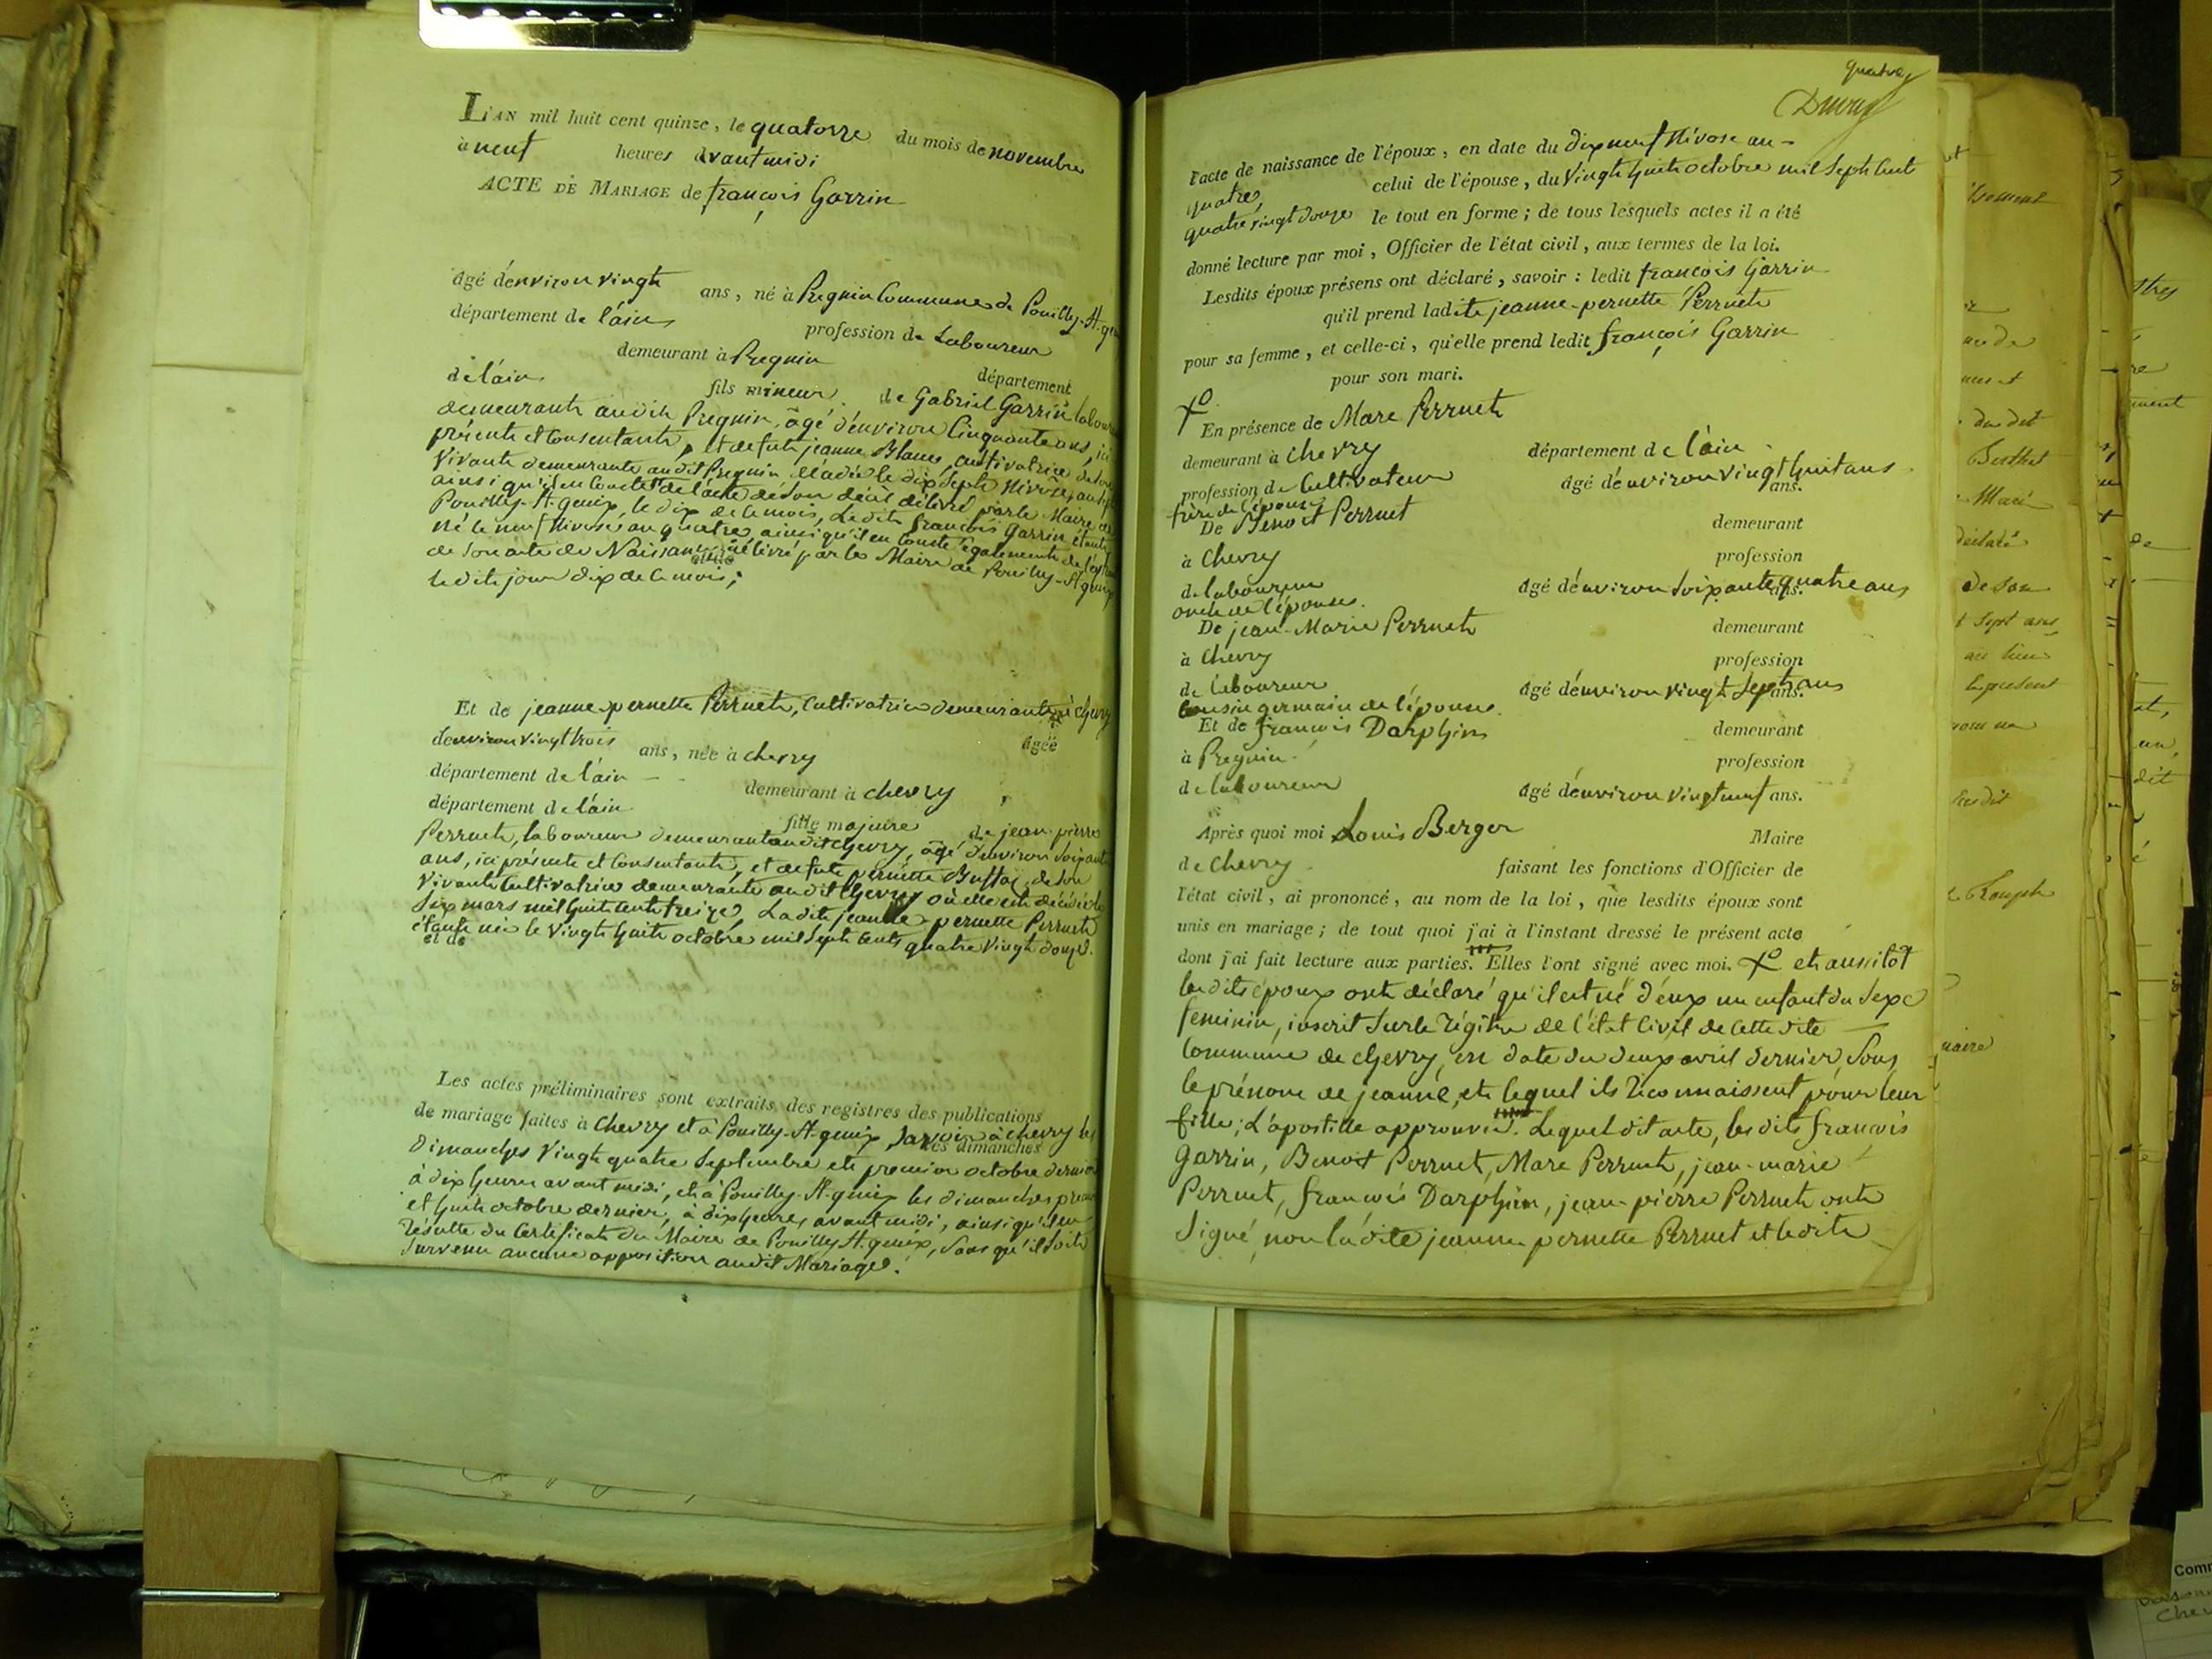 L'AN mil huit cent quinze, le quatorze du mois de novembre
à neuf heures avant midi
ACTE DE MARIAGE de françois Garrin
âgé d'environ vingt ans, né à Pregnin Commune de Pouilly-St.
département de l'ain profession de Laboureur
demeurant à Pregnin département
de l'ain fils mineur de Gabriel Garrin
demeurant audit Pregnin, âgé d'environ Cinquante ans,
présent et Consentant, et de fut jeanne Blanc, Cultivatrice
Vivante demeurante audit Pregnin, décédée le dix sept Nivôse,
ainsi qu'il en Conste de l'acte de son décès délivré par le Maire de
Pouilly-St. genix, le dix de Ce mois, Le dit françois Garrin étant
né le neuf Nivose an quatre, ainsi qu'il en Conste également de
de son acte de Naissance délivré par le Maire de Pouilly-St genix
le dit jour dix de Ce mois;
Et de jeanne-pernette Perruet, Cultivatrice demeurante à Chevry
d'environ vingt trois ans, née à chevry âgée
département de l'ain
demeurant à chevry
département de l'ain
fille majeure de jean-pierre
Perruet, laboureur demeurant audit Chevry, âgé d'environ Soixante
ans, ici présent et Consentant, et de fut pernette de Son
Vivante Cultivatrice demeurante audit Chevry où elle est décédée le
Six mars mil huit Cent treize, La dite jeanne-pernette Perruet
étant née le Vingt huit octobre mil Sept Cent quatre Vingt douze.
et de
Les actes préliminaires sont extraits des registres des publications
de mariage faites à Chevry et à Pouilly-St-genix, Savoir à chevry les
les dimanches
Dimanches Vingt quatre Septembre et premier octobre dernier
à dix heures avant midi, et à Pouilly-St-genix les dimanches premier
et huit octobre dernier, à dix heures avant midi, ainsi qu'il en
résulte du Certificat du Maire de Pouilly St. genix, Sans qu'il Soit
Survenu aucune opposition audit Mariage.
quatre
l'acte de naissance de l'époux, en date du dix neuf Nivose an-
quatre, celui de l'épouse, du Vingt huit octobre mil Sept Cent
quatre vingt douze le tout en forme; de tous lesquels actes il a été
donné lecture par moi, Officier de l'état civil, aux termes de la loi.
Lesdits époux présens ont déclaré, savoir : ledit françois Garrin
qu'il prend ladite jeanne-pernette Perruet
pour sa femme, et celle-ci, qu'elle prend ledit françois Garrin
pour son mari.
En présence de Marc Perruet
demeurant à chevry département de l'ain
profession de Cultivateur âgé d'environ Vingt huit ans.
ans.
frère de l'épouse
De Benoit Perruet demeurant
à Chevry profession
de laboureur âgé d'environ Soixante quatre ans
ans.
oncle de l'épouse.
De jean-Marie Perruet demeurant
à Chevry profession
de laboureur âgé d'environ Vingt Sept ans
ans.
Cousin germain de l'épouse.
Et de françois Darphin demeurant
à Pregnin profession
de laboureur âgé d'environ Vingt neuf ans.
Après quoi moi Louis Berger Maire
de Chevry faisant les fonctions d'Officier de
l'état civil, ai prononcé, au nom de la loi, que lesdits époux sont
unis en mariage; de tout quoi j'ai à l'instant dressé le présent acte
dont j'ai fait lecture aux parties. Elles l'ont signé avec moi. et aussitôt
les dits époux ont déclaré qu'il est né d'eux un enfant du Sexe
feminin, inscrit Sur le régitre de l'état Civil de Cette dite
Commune de Chevry, en date du deux avril dernier, Sous
le prénom de jeanne, et lequel ils reconnaissent pour leur
fille; L'apostille approuvée. Lequel dit acte, les dits françois
Garrin, Benoit Perruet, Marc Perruet, jean-marie
Perruet, françois Darphin, jean-pierre Perruet ont
Signé, non la dite jeanne pernette Perruet et le dit